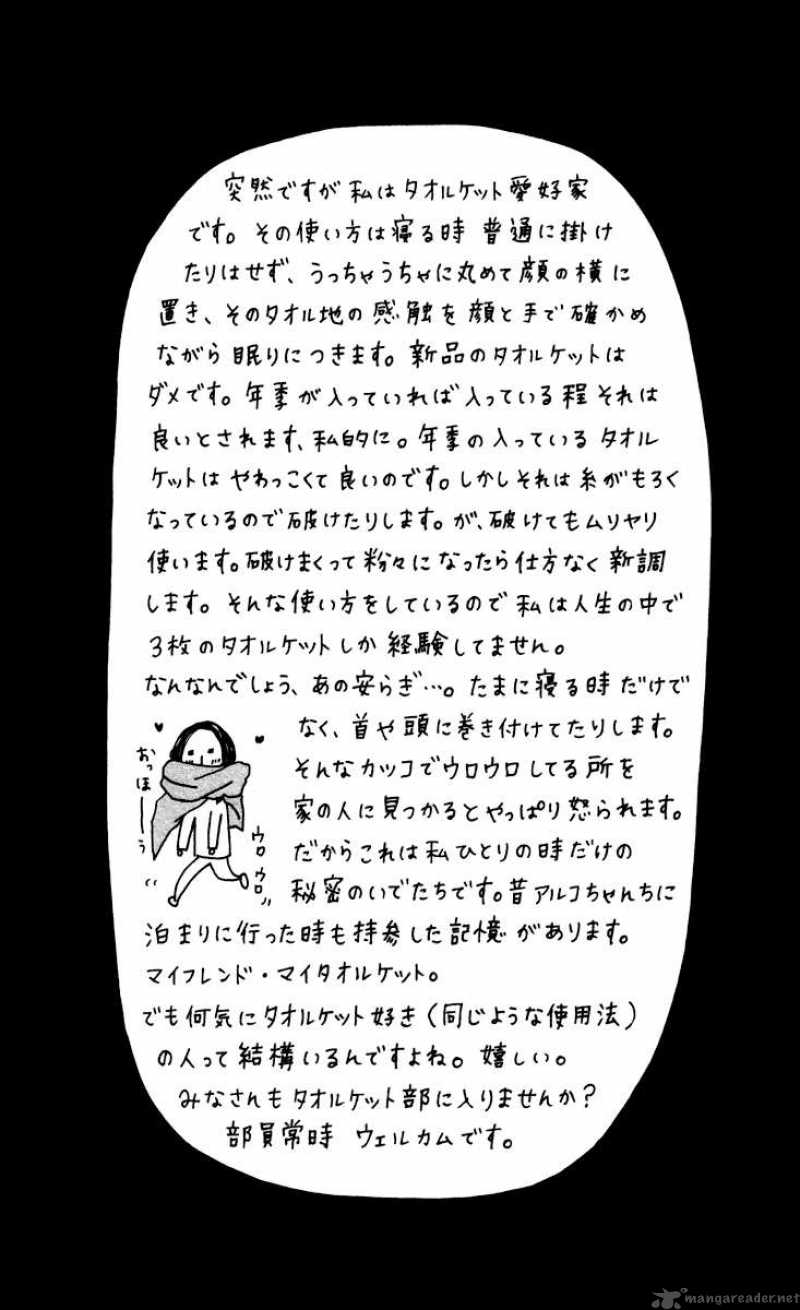 突然ですが私はタオルケット愛好家
です。その使い方は寝る時 普通に掛け
たりはせず、うっちゃうちゃに丸めて顔の横に
置き、そのタオル地の感触を顔と手で確かめ
ながら眠りにつきます。新品のタオルケットは
ダメです。年季が入っていれば入っている程それは
良いとされます、私的に。年季の入っているタオル
ケットは やわっこくて良いのです。しかしそれは糸がもろく
なっているので破けたりします。が、破けてもムリヤリ
使います。破けまくって粉々になったら仕方なく新調
します。そんな使い方をしているので私は人生の中で
3枚のタオルケットしか経験してません。
なんなんでしょう、あの安らぎ…。たまに寝る時だけで
なく、首や頭に巻き付けてたりします。
そんなカッコでウロウロしてる所を
家の人に見つかるとやっぱり怒られます。
だからこれは私ひとりの時だけの
秘密のいでたちです。昔アルコちゃんちに
泊まりに行った時も持参した記憶があります。
マイフレンド・マイタオルケット。
でも何気にタオルケット好き(同じような使用法)
の人って結構いるんですよね。嬉しい。
みなさんもタオルケット部に入りませんか?
部員常時 ウェルカムです。
おっほーぅ
ウロ
ウロ
mangareader.net